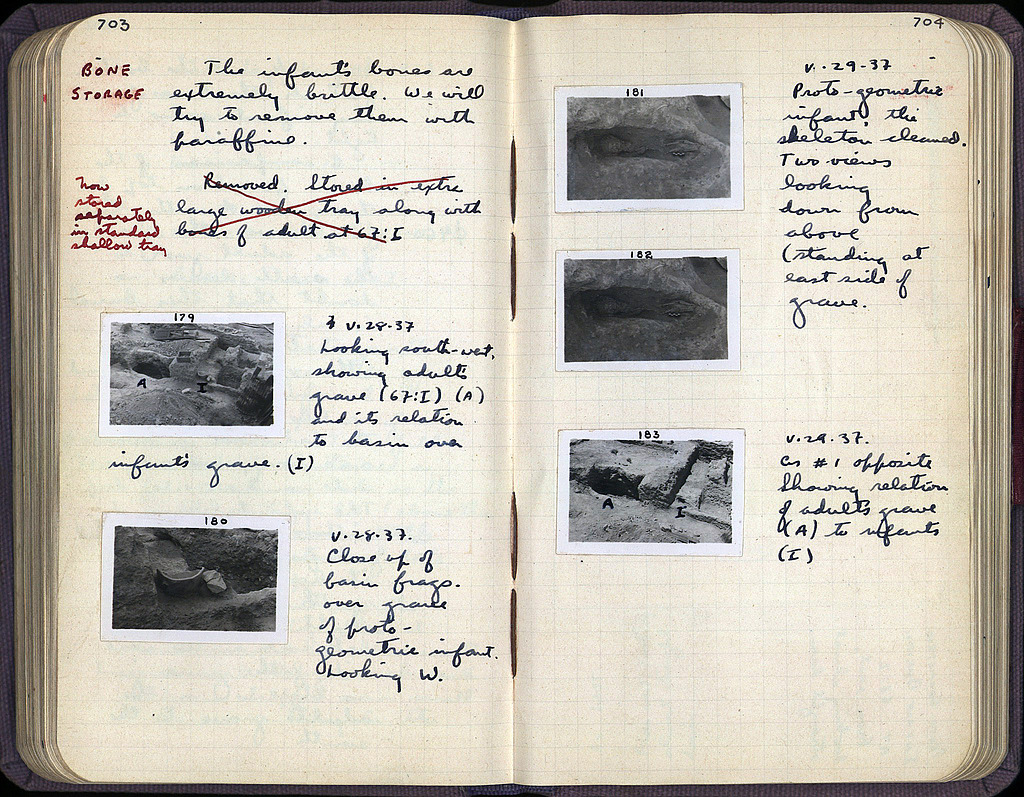 703
BONE
STORAGE
The infant's bones are
extremely brittle. We will
try to remove them with
paraffine.
now
stored
separately
in standard
shallow tray
Removed. Stored in extra
large wooden tray along with
bones of adult at 67:I
179
A
I
V.28.37
Looking south-west,
showing adults
grave (67:I) (A)
and its relation
to basin over
infant's grave. (I)
180
V.28.37.
Close up of
basin frags.
over grave
of proto-
geometric infant.
Looking W.
704
181
V.29-37
Proto-geometric
infant, the
skeleton cleaned.
Two views
looking
down from
above
(standing at
east side of
grave.
182
183
A
I
V.29.37.
as #1 opposite
Showing relation
of adults grave
(A) to infants
(I)